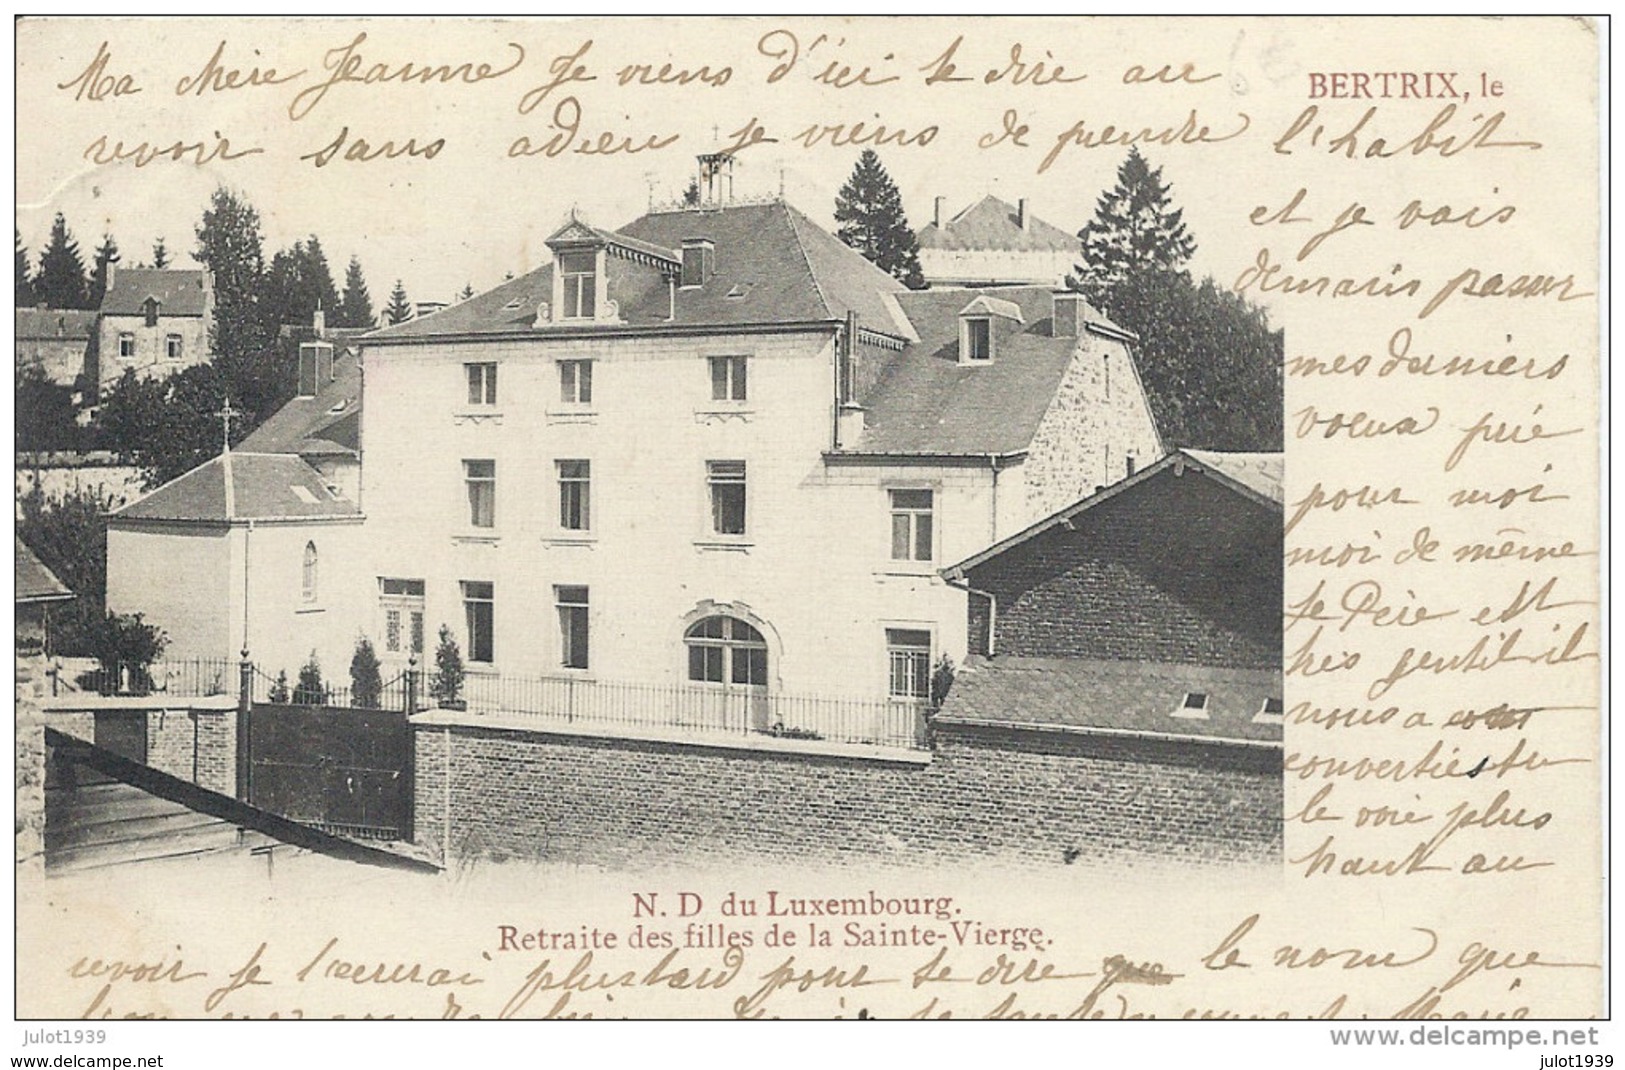 Ma chère Jeanne je viens d'ici te dire au
BERTRIX, le
revoir sans adieu je viens de prendre l'habit
et je vais
demain passer
mes derniers
voeux prie
pour moi
moi de même
le Père est
très gentil il
nous a
converties tu
le voie plus
haut au
N. D du Luxembourg.
Retraite des filles de la Sainte-Vierge.
revoir je t'ecrerai plus tard pour te dire que le nom que
julot1939
www.delcampe.net
julot1939
julot1939